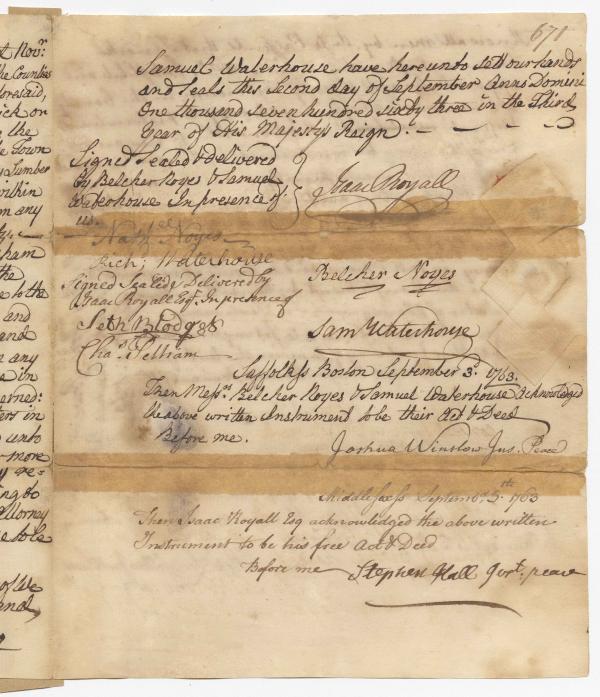 671
t Nov.r
the Counties
foresaid,
ick or
the
Town
Lumber
within
m any
ham
the
e to the
and
and
n any
a in
erned:
ters in
unto
more
y re=
ing to
Attorney
e sole
of We
and,
Samuel Waterhouse have hereunto sett our hands
and seals this Second day of September Anno Domini
One thousand seven hundred sixty three in the Third
Year of His Majestys Reign. —
Signed Sealed & delivered
by Belcher Noyes & Samuel
Waterhouse In presence of
us.
Isaac Royall
Nath.el Noyes
Rich; Waterhouse
Signed Sealed & Delivered by
Isaac Royall Esq.r In presence of
Belcher Noyes
Seth Blodget
Sam Waterhouse
Cha.s Pelham
Suffolk ss Boston September 3. 1763.
Then Mess.rs Belcher Noyes & Samuel Waterhouse Acknowledged
the above written Instrument to be their act & Deed
Before me.
Joshua Winslow Jus. Peace
Middlesex ss Septem.r 3.th 1763
Then Isaac Royall Esq acknowledged the above written
Instrument to be his free act & Deed
Before me Stephen Hall Jus.t peace